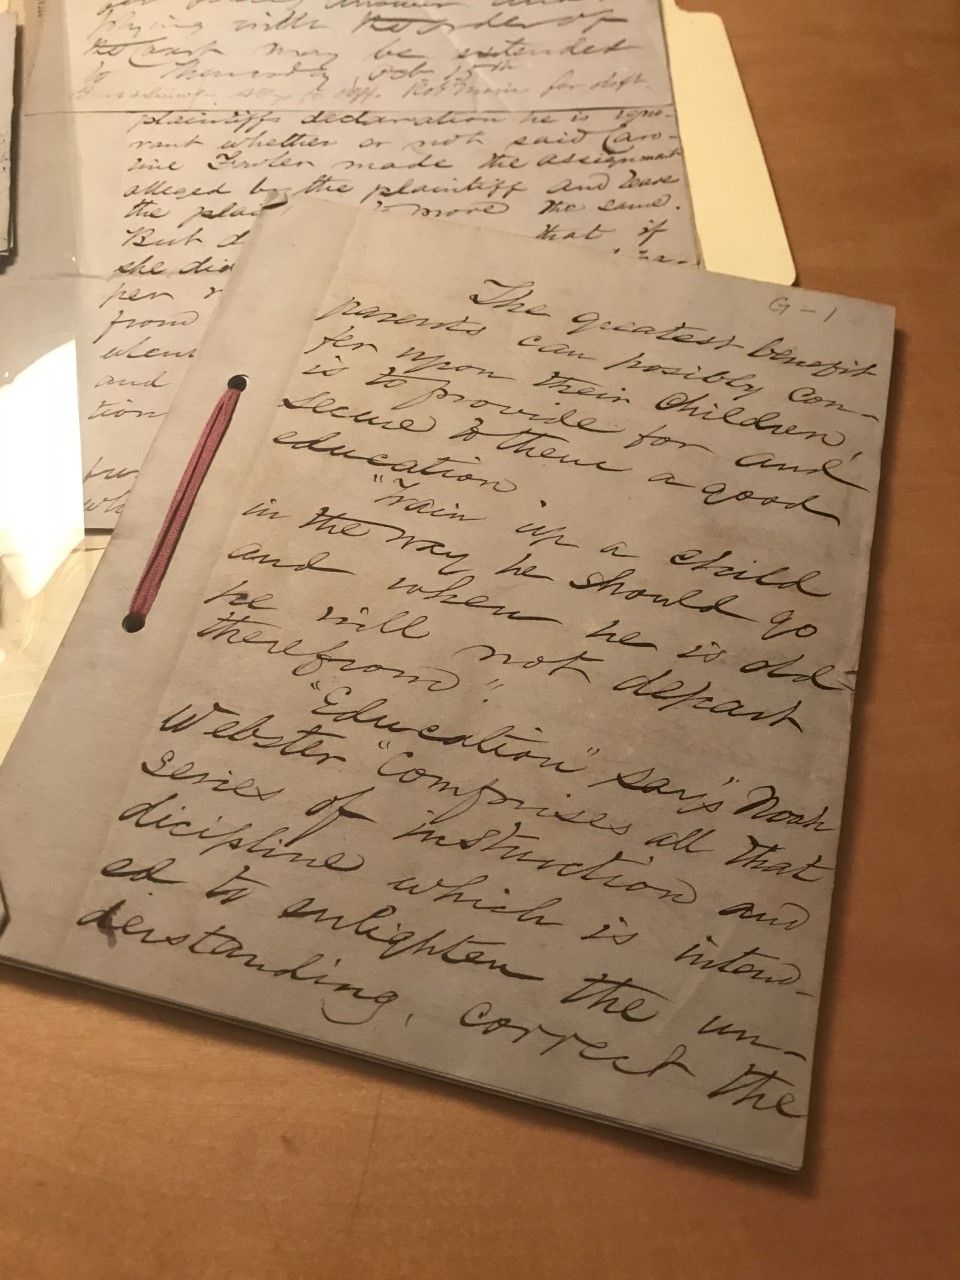 plying with the order of
the Court may be extended
to Thursday, Oct 15th
for deft.
plaintiffs declaration he is igno-
rant whether or not said Caro-
line Fowler made the assignment
alleged by the plaintiff and leaves
the plai to more the same.
But d that if
she did
per
from
when
and
tion
G-1
The greatest benefit
parents can posibly con-
fer upon their children
is to provide for and
secure to them a good
education
"Train up a child
in the way he should go
and when he is old
he will not depart
therefrom"
"Education" say's "Noah
Webster "comprises all that
series of insturction and
dicipline which is intend-
ed to enlighten the un-
derstanding, correct the